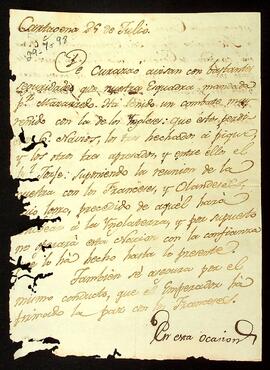 Cartagena 25 de Julio.
De Curazao avisan con bastante
seguridad que nuestra Esquadra, mandada
pr. Mazarredo Ha tenido un combate muy
reñido con la de los Yngleses: que estos perdieron
6. Navios, los tres hechados a pique,
y los otros tres apresados, y entre ellos el
Gefe: Suponiendo la reunion de la
nuestra con los Franceses, y Olandeses
precedido de aquel hará
a la Ynglaterra, y por supuesto
no obrará esta Nacion con la confianza
q.e lo ha hecho hasta lo presente.
Tambien se asegura por el
mismo conducto, que el Emperador ha
firmado la paz con los Franceses.
Por esta ocasion